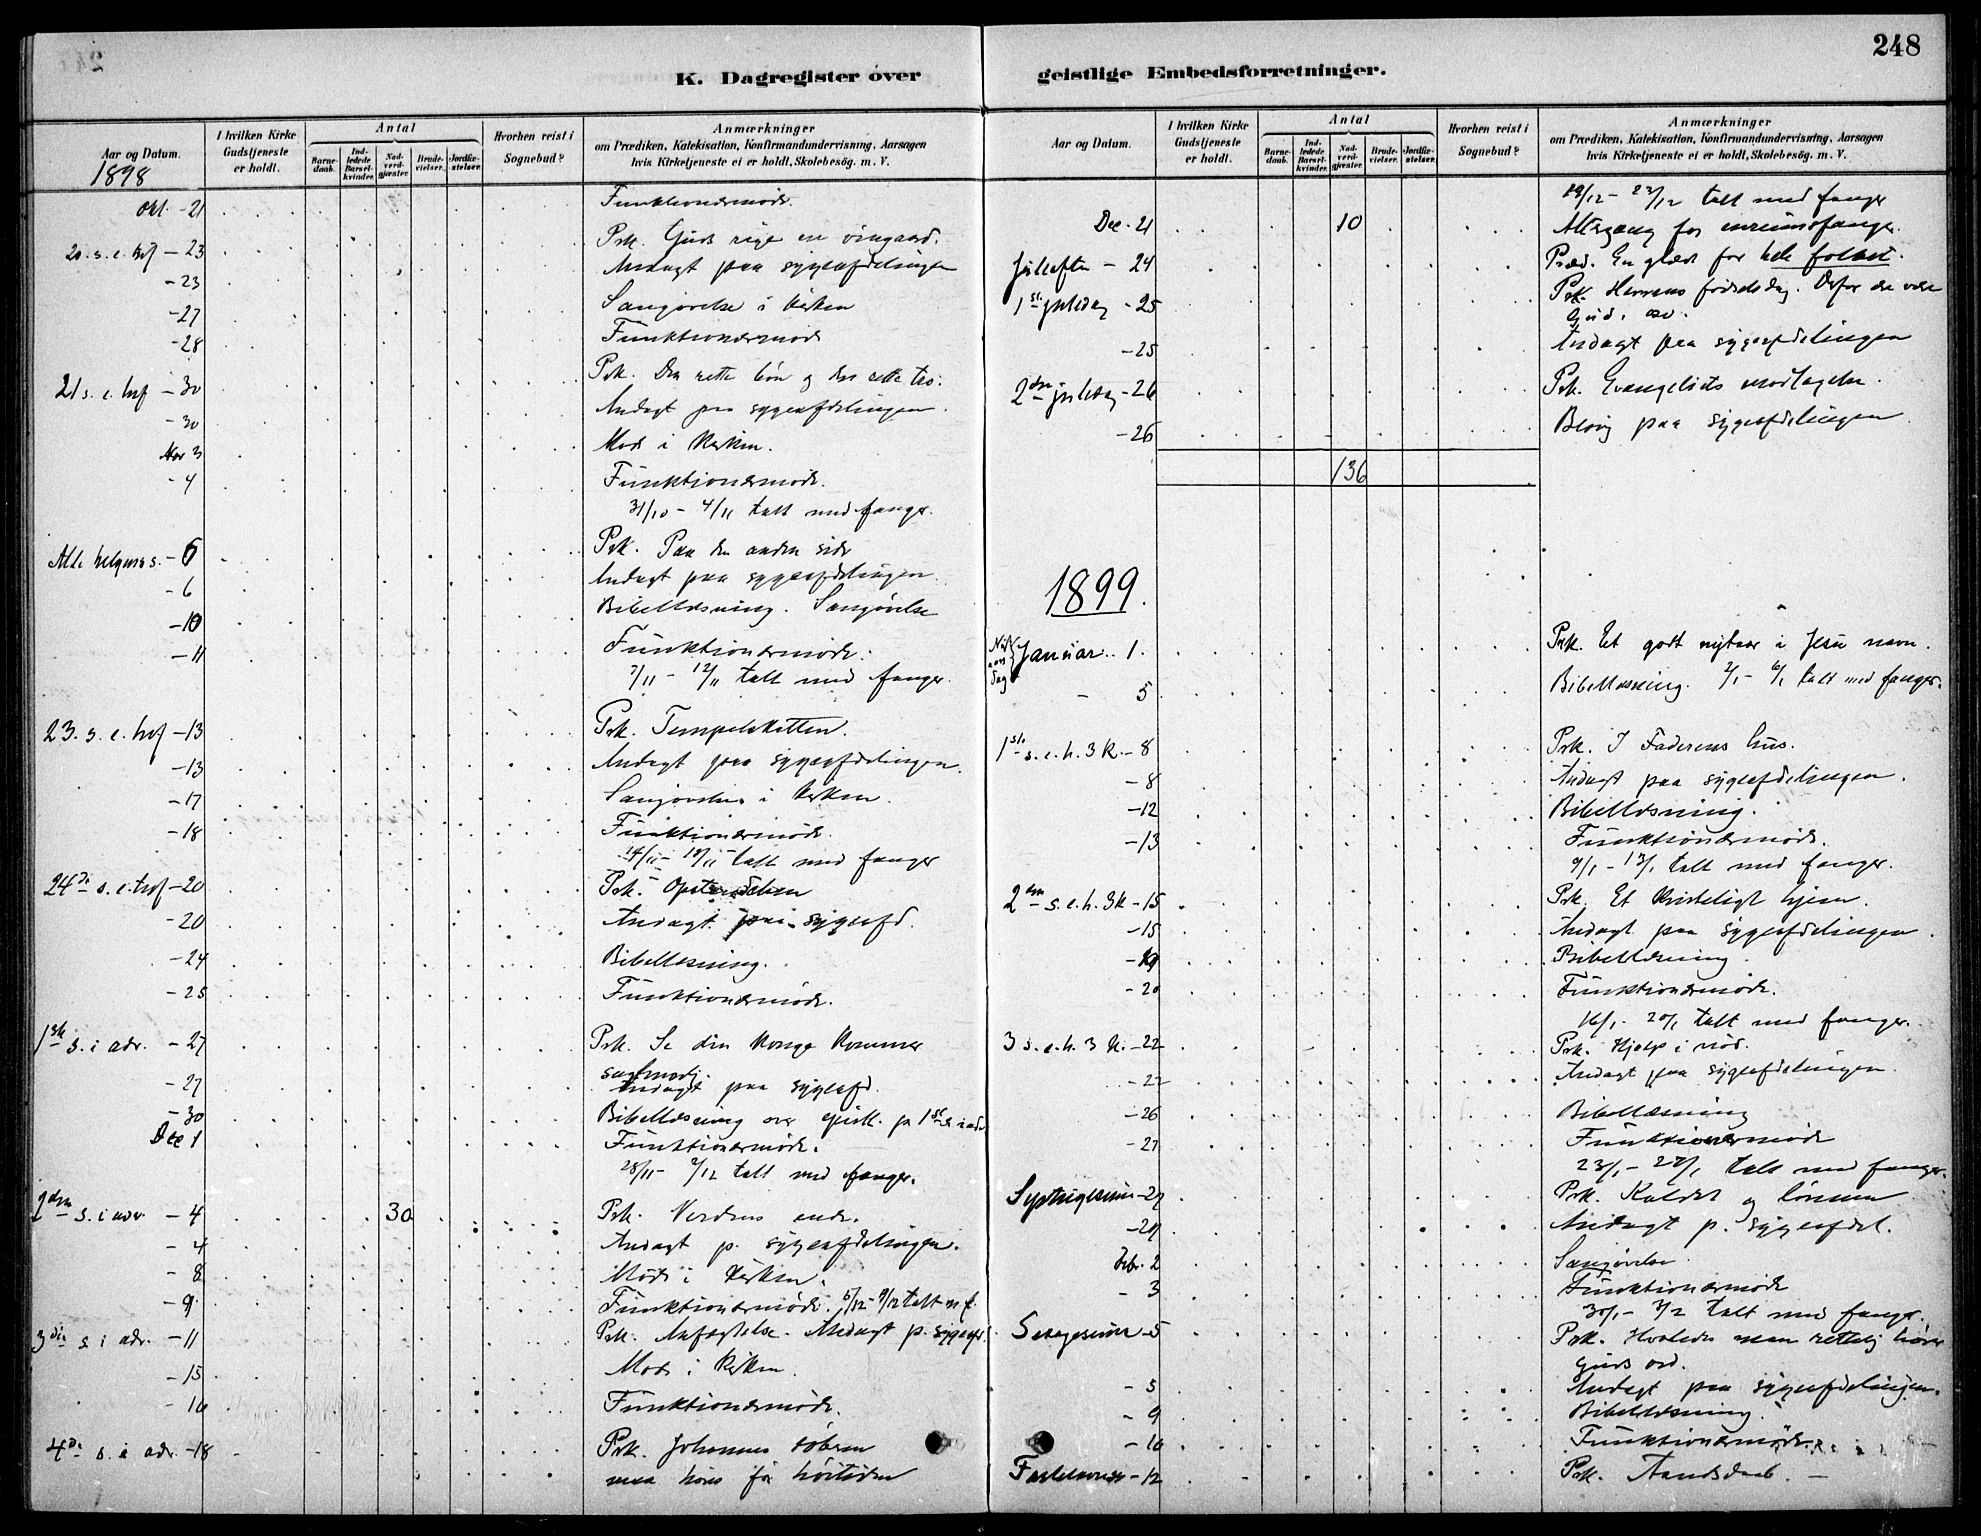 248
K. Dagregister over geistlige Embedsforretninger.
Aar og Datum.
I hvilken Kirke Gudstjeneste er holdt.
Antal
Barnedaab.
Indledede Barselkvinder.
Nadverdgjæster.
Brudevielser.
Jordfæstelser.
Hvorhen reist i Sognebud?
Anmærkninger
om Prædiken, Katekisation, Konfirmandundervisning, Aarsagen
hvis Kirketjeneste ei er holdt, Skolebesøg. m. V.
1898
Okt. - 21 Funktionærmöde.
20. s. e. tref - 23 Prk. Guds rige en vingaard.
- 23 Andagt paa sygeafdelingen
- 27 Sangövelse i kirken
- 28 Funktionærmöde
21 s. e. tref - 30 Prk. Den rette bön og den rette tro.
- 30 Andagt paa sygeafdelingen.
Nov 3 Möde i kirken.
- 4 Funktionærmöde.
31/10 - 4/11 talt med fanger.
Alle helgens s. - 6 Prk. Paa den anden side
- 6 Andagt paa sygeafdelingen
- 10 Bibellæsning. Sangövelse
- 11 Funktionærmöde.
7/11 - 12/11 talt med fanger.
23. s. e. tref - 13 Prk. Tempelskatten.
- 13 Andagt paa sygeafdelingen.
- 17 Sangövelse i kirken.
- 18 Funktionærmöde.
14/11 - 18/11 talt med fanger
24de s. e. tref - 20 Prk. Opstandelsen
- 20 Andagt paa sygeafd.
- 24 Bibellæsning.
- 25 Funktionærmöde.
1ste s. i adv. - 27 Prk. Se din konge kommer
sagtmodig.
- 27 Andagt paa sygeafd.
- 30 Bibellæsning over epist. p. 1ste s. i adv
Dec 1 Funktionærmöde.
28/11 - 2/12 talt med fanger.
2den s. i adv. - 4 30 Prk. Verdens ende.
- 4 Andagt p. sygeafdelingen.
- 8 Möde i kirken.
- 9 Funktionærmöde. 5/12 - 9/12 talt m f.
3die s. i adv. - 11 Prk. Anfægtelse. Andagt p. sygeafd.
- 15 Möde i kirken.
- 16 Funktionærmöde.
4de s. i adv. - 18 Prk. Johannes döberen
maa höres för höitiden
Aar og Datum.
I hvilken Kirke Gudstjeneste er holdt.
Antal
Barnedaab.
Indledede Barselkvinder.
Nadverdgjæster.
Brudevielser.
Jordfæstelser.
Hvorhen reist i Sognebud?
Anmærkninger
om Prædiken, Katekisation, Konfirmandundervisning, Aarsagen
hvis Kirketjeneste ei er holdt, Skolebesög. m. V.
19/12 - 23/12 talt med fanger
Dec - 21 10 Altergang for
Juleaften - 24 Præd. En glæde for hele folket.
1ste juledag - 25 Prk. Herrens födselsdag. Derfor
Gud.
- 25 Andagt paa sygeafdelingen
2den juledag - 26 Prk. Evangeliets modtagelse.
- 26 Besög paa sygeafdelingen
136
1899.
Nytaarsdag Januar. 1. Prk. Et godt nytaar i Jesu navn.
- 5 Bibellæsning. 2/1 - 6/1 talt med fanger.
1ste s. e. h. 3 k. - 8 Prk. I Faderens hus.
- 8 Andagt paa sygeafdelingen.
- 12 Bibellæsning.
- 13 Funktionærmöde.
9/1 - 13/1 talt med fanger.
2den s. e. h. 3 k - 15 Prk. Et kristeligt hjem.
- 15 Andagt paa sygeafdelingen.
- 19 Bibellæsning.
- 20 Funktionærmöde.
16/1 - 20/1 talt med fanger.
3 s. e. h. 3 k. - 22 Prk. Hjælp i nöd.
- 22 Andagt paa sygeafdelingen.
- 26 Bibellæsning
- 27 Funktionærmöde
23/1 - 27/1 talt med fanger.
Septuagesima - 29 Prk. Kaldet og lönnen
- 29 Andagt p. sygeafdel.
Febr. 2 Sangövelse
- 3 Funktionærmöde
30/1 - 3/2 talt med fanger.
Sexagesima - 5 Prk. Hvorledes man rettelig hörer
Guds ord.
- 5 Andagt paa sygeafdelingen.
- 9 Bibellæsning.
- 10 Funktionærmöde.
Fastelavns - 12 Prk. Aandsdaab. -